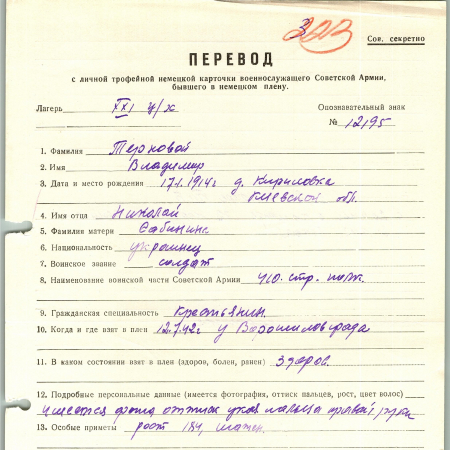 203
Сов. секретно
ПЕРЕВОД
с личной трофейной немецкой карточки военнослужащего Советской Армии,
бывшего в немецком плену.
Лагерь XXI ц/х Опознавательный знак
№ 12195
1. Фамилия Терновой
2. Имя Владимир
3. Дата и место рождения 17.1.1914г д. Кириловка
Киевской обл.
4. Имя отца Николай
5. Фамилия матери
6. Национальность украинец
7. Воинское звание солдат
8. Наименование воинской части Советской Армии 410. стр. полк.
9. Гражданская специальность Крестьянин.
10. Когда и где взят в плен 12.7.42г у Ворошиловграда
11. В каком состоянии взят в плен (здоров, болен, ранен) Здоров.
12. Подробные персональные данные (имеется фотография, оттиск пальцев, рост, цвет волос)
имеется фото оттиск указ пальца правой руки
13. Особые приметы рост 184, шатен.